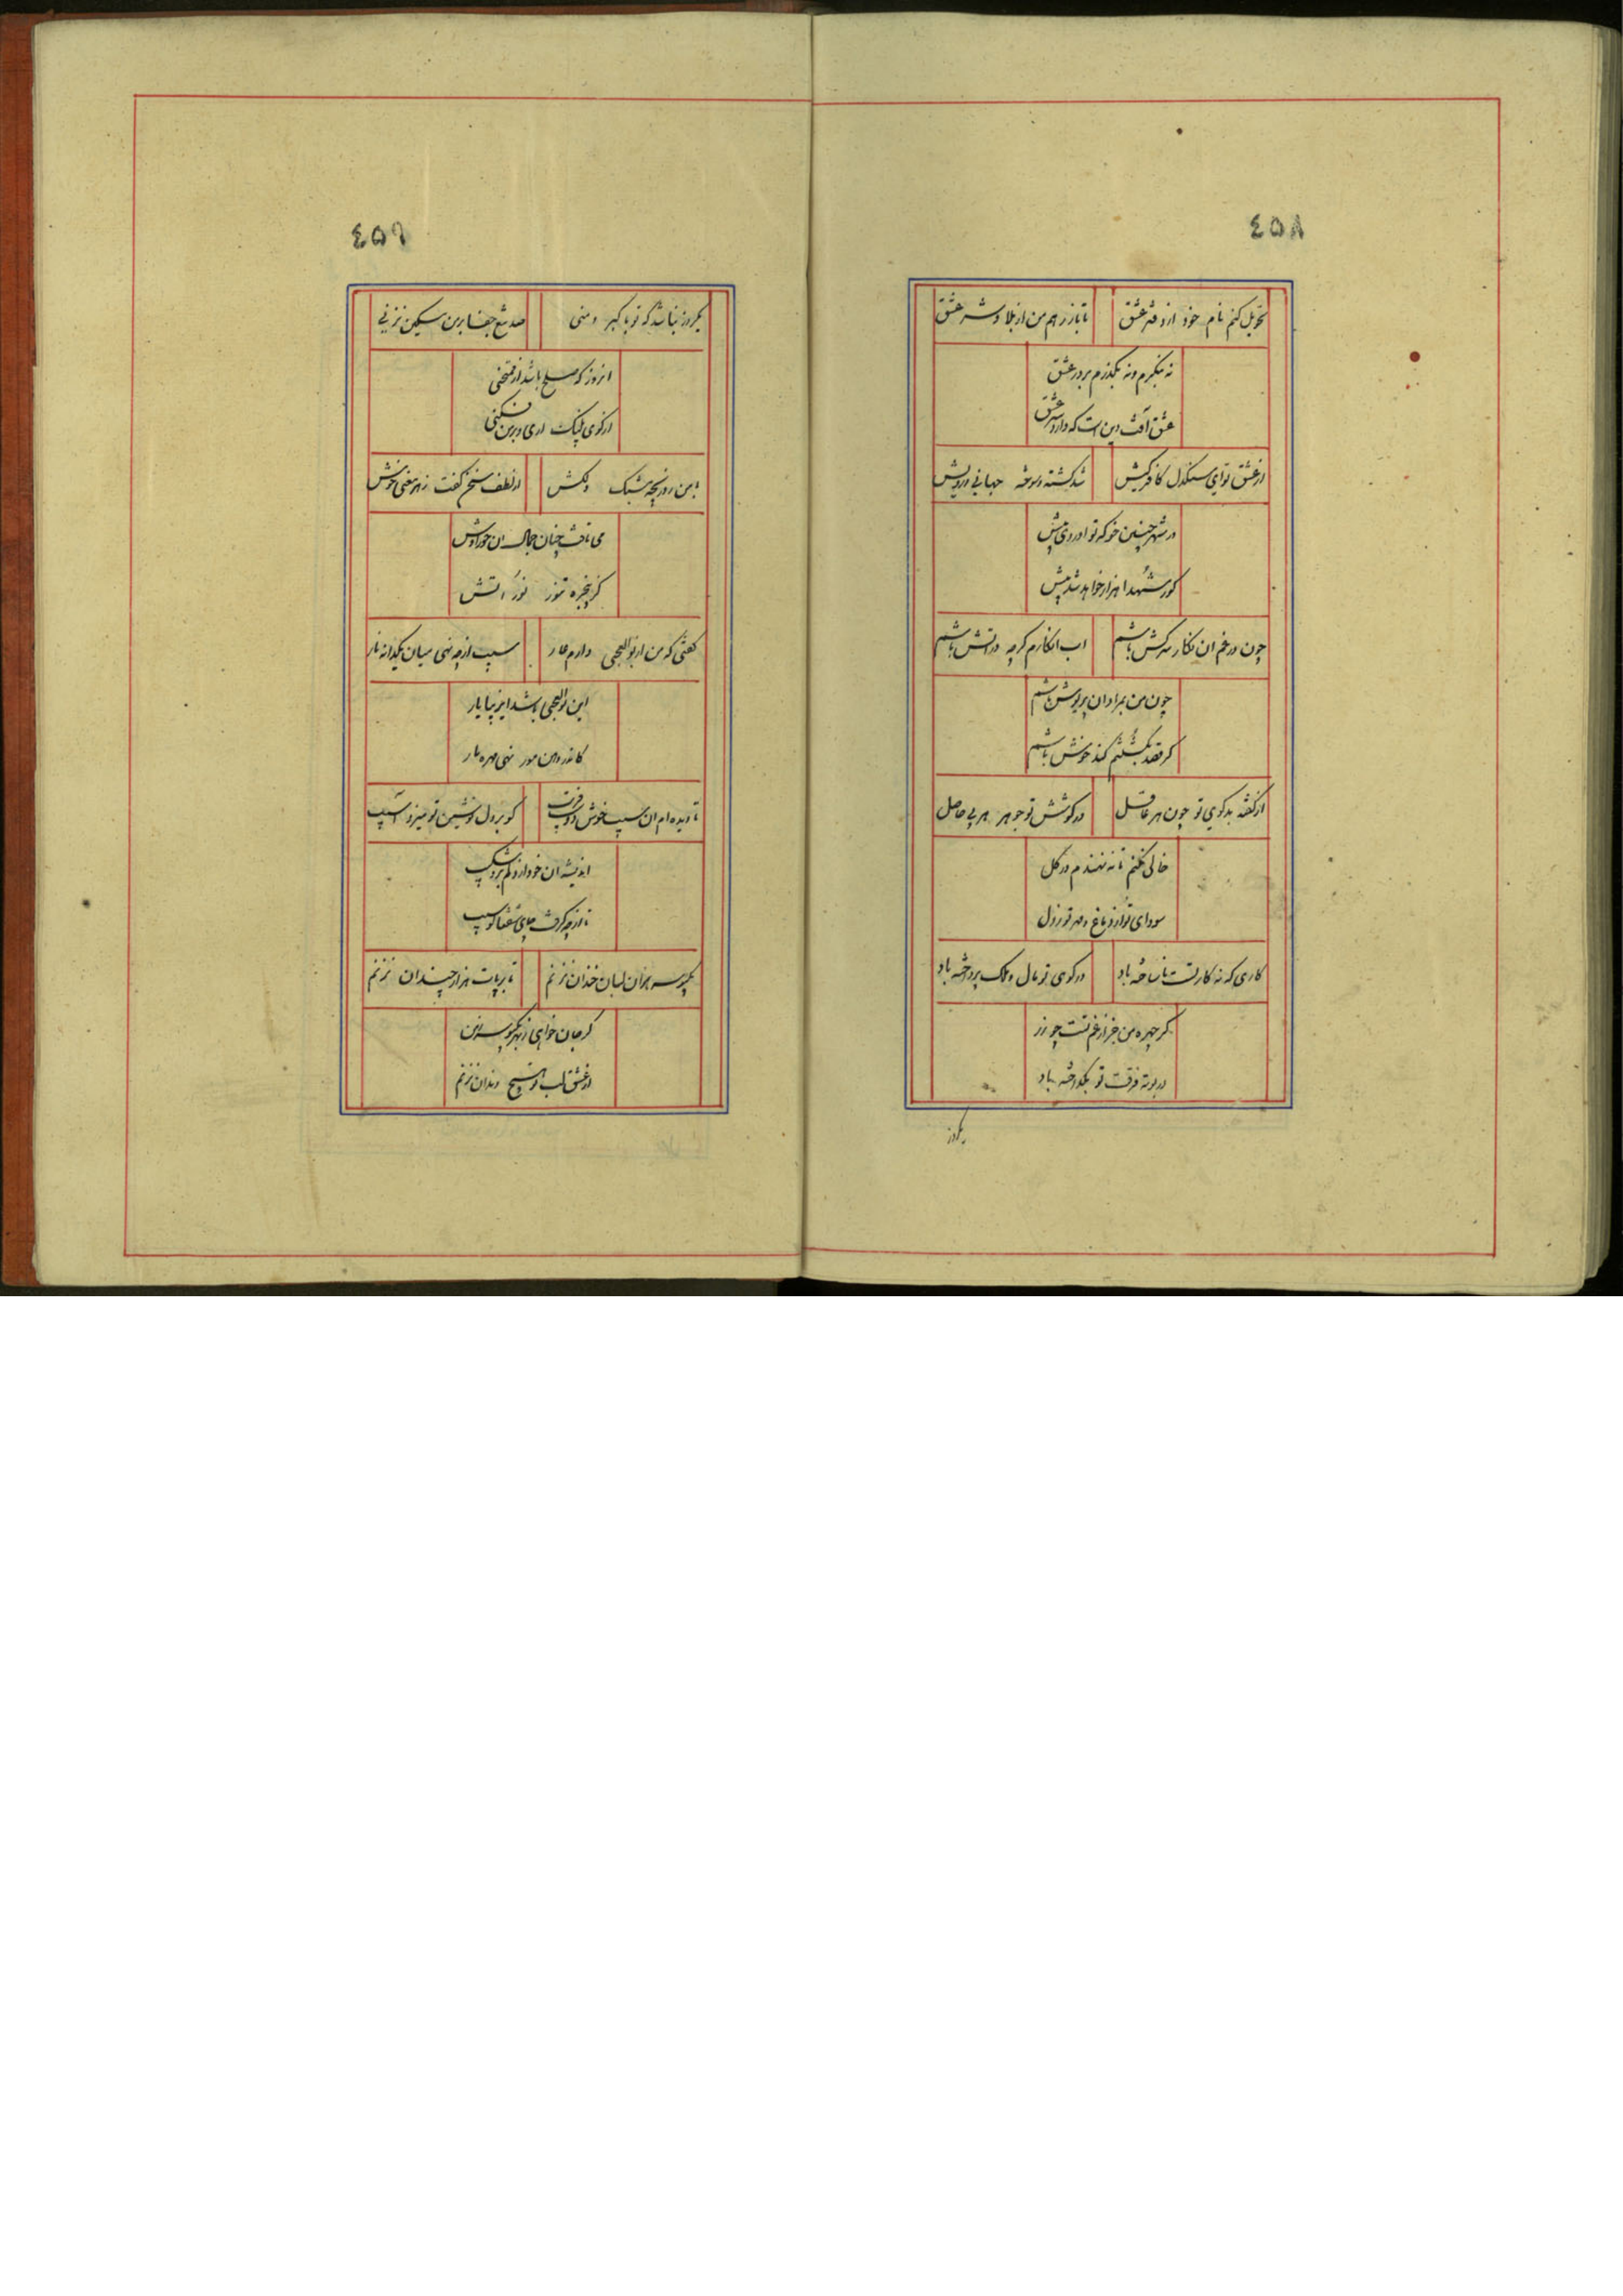 ٤٥٨
تحویل کنم نام خود از دفتر عشق
تا باز رهم من از بلا و شر عشق
نه بنگرم و نه بگذرم بر در عشق
عشق آفت دین است که دارد سر عشق
از عشق تو ای سنگدل کافر کیش
شد کشته و سوخته جهانی درویش
در شهر چنین خو که تو آوردی پیش
گور شهدا هزار خواهد شد بیش
چون در غم ان نگار سرکش باشم
اب انگارم گرچه در اتش باشم
چون من بمراد ان پریوش باشم
گر قصد بکشتنم کند خوش باشم
از گفته بدگوی تو چون هر عاقل
در کوشش تو جو هر هر بی حاصل
خالی نکنم تا نه نهندم در گل
سودای تو از دماغ و مهر تو ز دل
کاری که نه کار تست ناساخته باد
در کوی تو مال و ملک پرداخته باد
گر چهره من جز از غم تست چو زر
در بوته فرقت تو بگداخته باد
یکروز
٤٥٩
یکروز نباشد که تو با کبر و منی
صد تیغ جفا بر من مسکین نزنی
انروز که صلح باشد از
از کوی پلنگ اری و بر من فکنی
با من ز دریچه مشبک دلکش
از لطف سخن گفت ز هر معنی خوش
می تافت چنان جمال ان حوراوش
کز پنجره تنور نور اتش
گفتی که من از بوالعجبی دارم عار
سیب از چه نهی میان یکدانه نار
این بوالعجبی باشد ای زیبا یار
کاندر دهن مور نهی مهره مار
تا دیده ام ان سیب خوش دوست فریب
کو بر دل نوشین تو میزد آسیب
اندیشه ان خود از دلم برد شکیب
تا از چه گرفت جای شفتالو سیب
یکبوسه بران لبان خندان نزنم
تا بر پات هزار چندان نزنم
گر جان خواهی ز بهر یکبوسه ز من
در عشق لب تو هیچ دندان نزنم